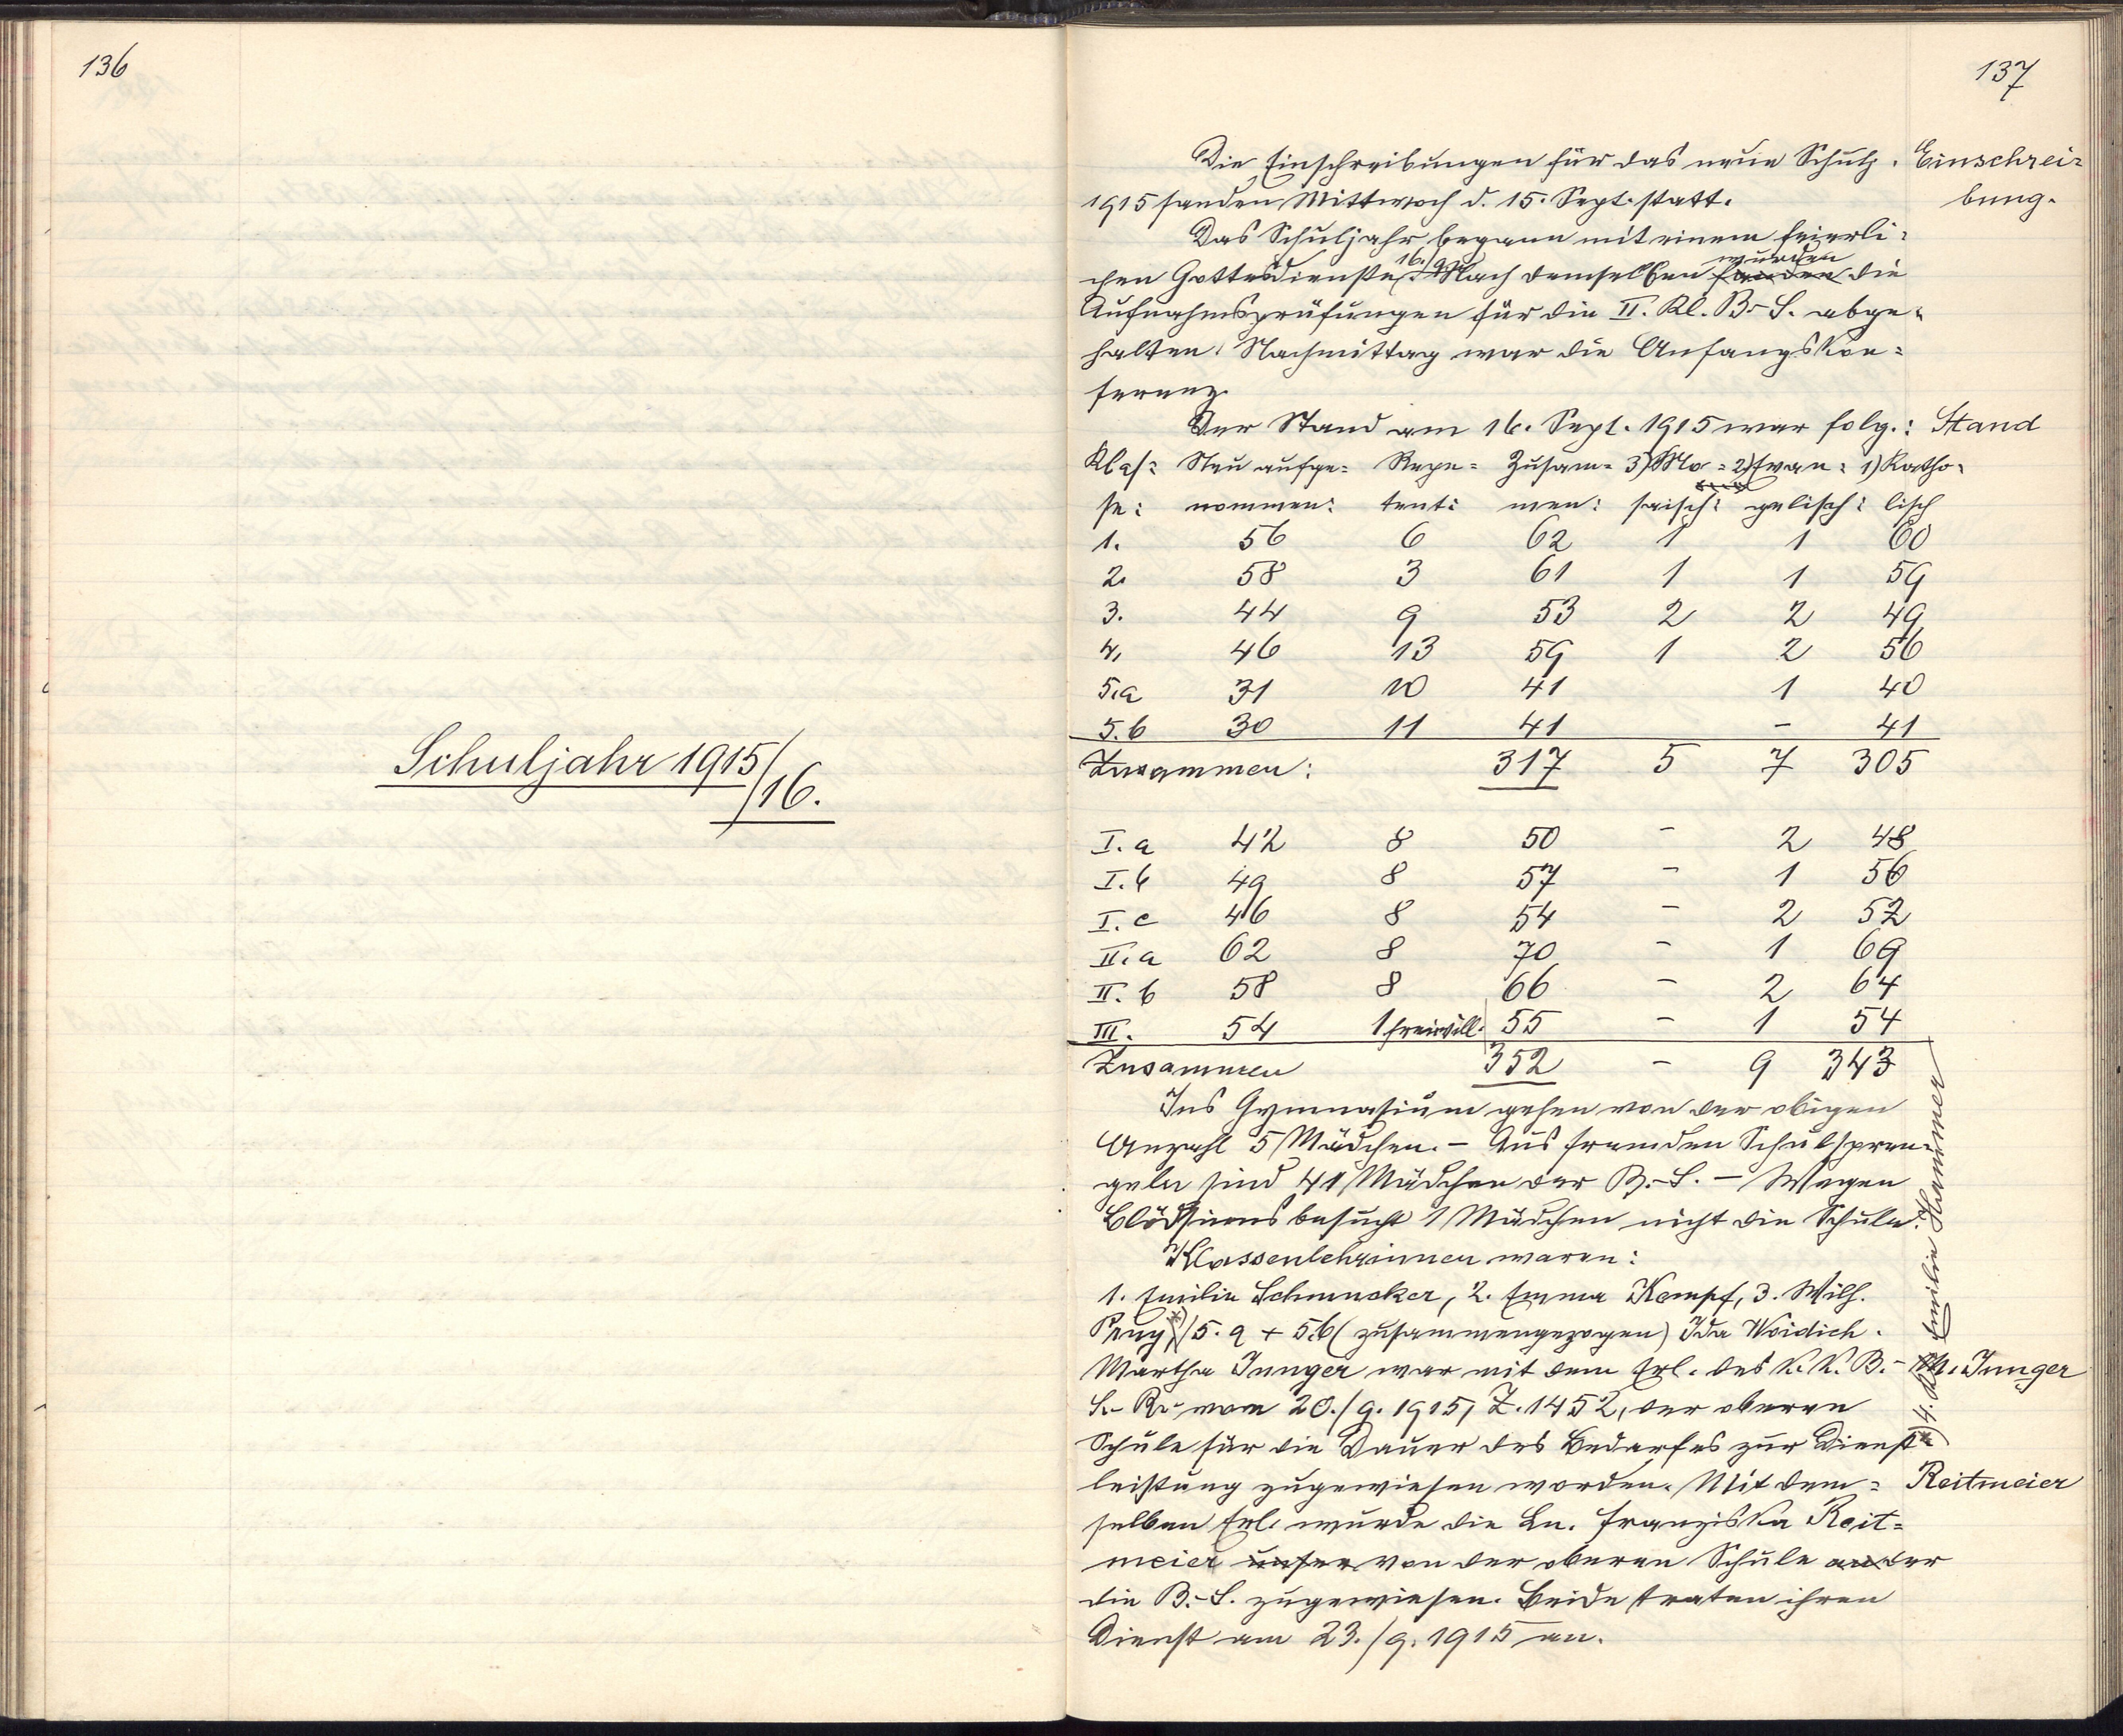 136
Schuljahr 1915/16.
137
Die Einschreibungen für das neue Schulj.
1915 fanden Mittwoch d. 15. Sept. statt.
Einschrei=
bung.
Das Schuljahr begann mit einem feierli=
chen Gottesdienste 16./9. Nach demselben fanden wurden die
Aufnahmsprüfungen für die II. Kl. B.-S. abge=
halten. Nachmittag war die Anfangskon=
ferenz.
Der Stand am 16. Sept. 1915 war folg.: Stand
Klas= Neu aufge= Repe= Zusam= 3) Mo= 2) Evan= 1) Katho=
se: nommen: tent: men: saisch: gelisch: lisch
1. 56 6 62 1 1 60
2. 58 3 61 1 1 59
3. 44 9 53 2 2 49
4. 46 13 59 1 2 56
5.a 31 10 41 1 40
5.b 30 11 41 - 41
Zusammen: 317 5 7 305
I. a 42 8 50 - 2 48
I. b 49 8 57 - 1 56
I. c 46 8 54 - 2 52
II. a 62 8 70 - 1 69
II. b 58 8 66 - 2 64
III. 54 1 freiwill. 55 - 1 54
Zusammen 352 - 9 343
Ins Gymnasium gehen von der obigen
Anzahl 5 Mädchen. - Aus fremden Schulspren=
geln sind 41 Mädchen der B.-S. - Wegen
Blödsinns besucht 1 Mädchen nicht die Schule.
Klassenlehrinnen waren:
1. Emilie Schmucker, 2. Emma Kempf, 3. Wilh.
Peny, *) 5. a + 5.b (zusammengezogen) Ida Woidich.
*) 4. Kl. Emilie Hammer
Martha Junger war mit dem Erl. des k. k. B.-
M. Junger
S.-R. vom 20./9. 1915, Z. 1452, der oberen
Schule für die Dauer des Bedarfes zur Dienst=
leistung zugewiesen worden. Mit dem=
Reitmeier
selben Erl. wurde die Ln. Franziska Reit=
meier unser von der oberen Schule an der
die B.-S. zugewiesen. Beide traten ihren
Dienst am 23./9. 1915 an.